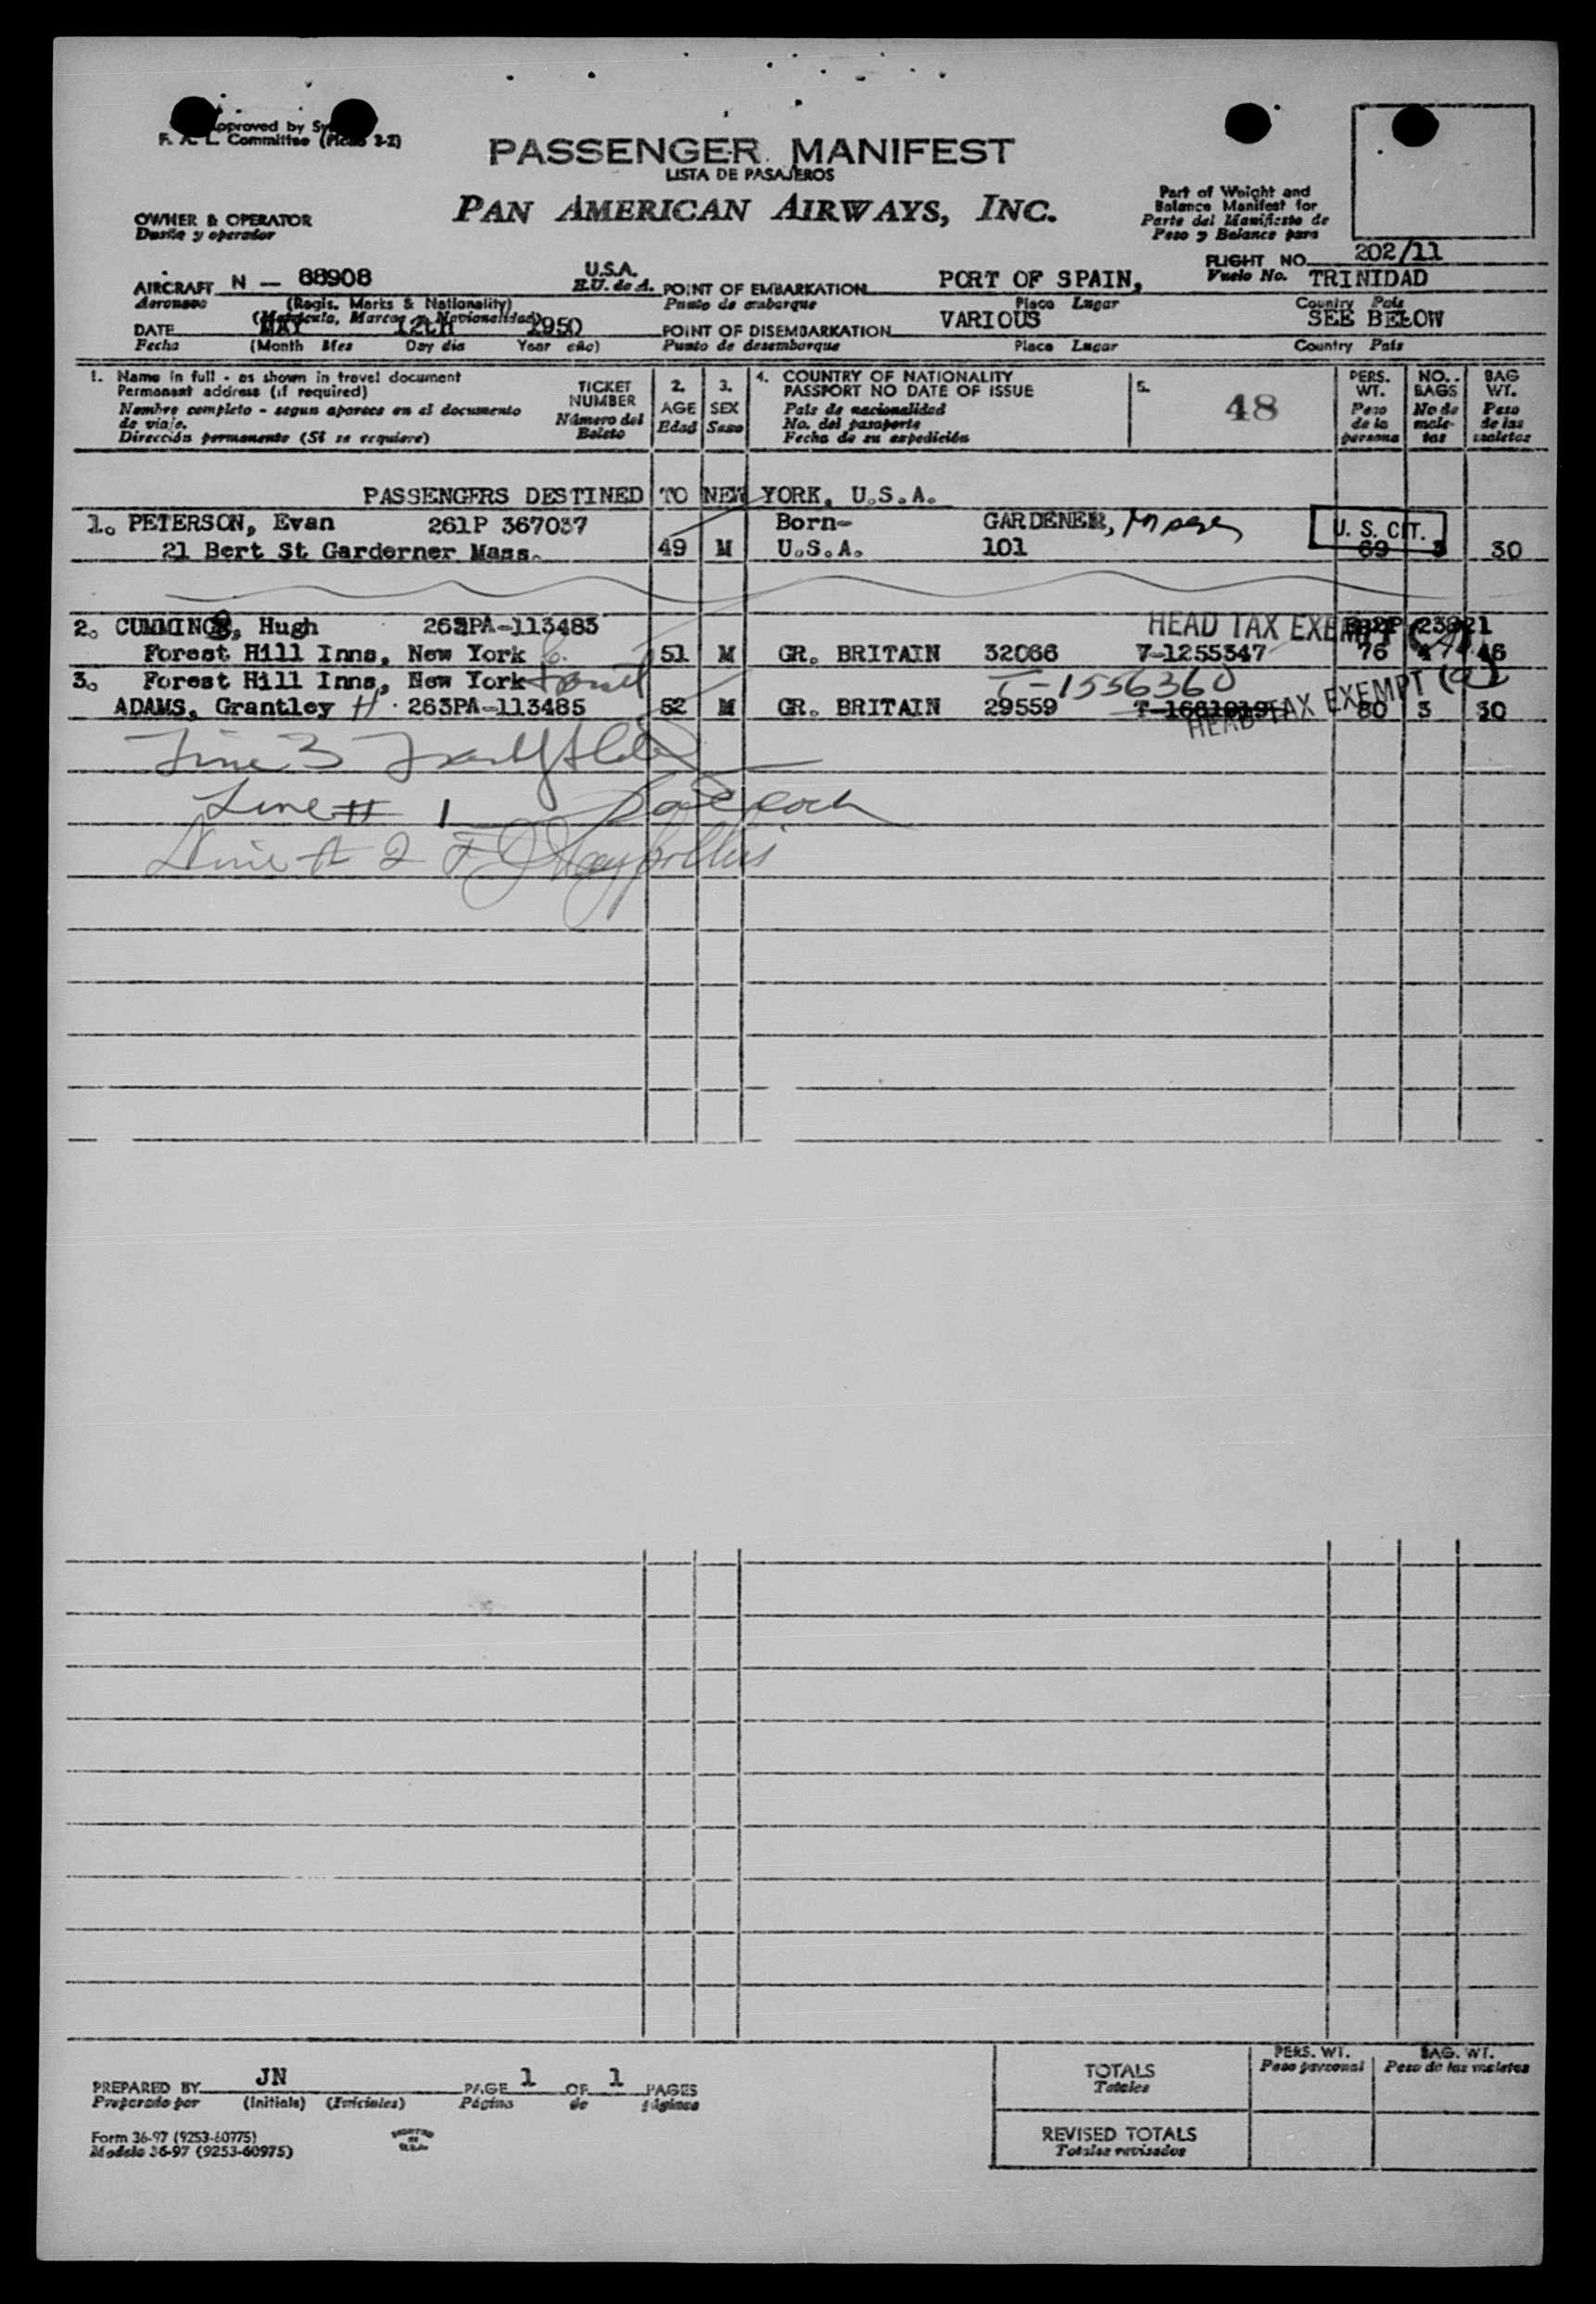 Approved by
F. A. L. Committee (Picao 3-2)
PASSENGER MANIFEST
LISTA DE PASAJEROS
PAN AMERICAN AIRWAYS, INC.
Part of Weight and
Balance Manifest for
Parte del Manifiesto de
Peso y Balance para
OWNER & OPERATOR
Dueño y operador
FLIGHT NO. 202/11
Vuelo No.
AIRCRAFT N — 88908 U.S.A. POINT OF EMBARKATION PORT OF SPAIN, TRINIDAD
Aeronave (Regis. Marks & Nationality) E.U. de A. Punto de embarque Place Lugar Country País
(Matrícula, Marcas y Nacionalidad)
DATE MAY 12th 1950 POINT OF DISEMBARKATION VARIOUS SEE BELOW
Fecha (Month Mes Day día Year año) Punto de desembarque Place Lugar Country País
1. Name in full - as shown in travel document
Permanent address (if required)
Nombre completo - segun aparece en el documento
de viaje.
Dirección permanente (Si se requiere)
TICKET
NUMBER
Número del
Boleto
2.
AGE
Edad
3.
SEX
Sexo
4. COUNTRY OF NATIONALITY
PASSPORT NO DATE OF ISSUE
País de nacionalidad
No. del pasaporte
Fecha de su expedición
5.
48
PERS.
WT.
Peso
de la
persona
NO.
BAGS
No de
male-
tas
BAG
WT.
Peso
de las
maletas
PASSENGERS DESTINED TO NEW YORK, U.S.A.
1. PETERSON, Evan 261P 367037 Born- GARDENER, Mass U. S. CIT.
21 Bert St Garderner Mass. 49 M U.S.A. 101 69 3 30
2. CUMMINGS, Hugh 263PA-113483 HEAD TAX EXEMPT
Forest Hill Inns, New York 51 M GR. BRITAIN 32066 V-1255347 76 4 46
3. Forest Hill Inns, New York T-1556360
ADAMS, Grantley H. 263PA-113485 52 M GR. BRITAIN 29559 HEAD TAX EXEMPT 80 3 30
Line 3
Line # 1
Line # 2
PREPARED BY JN PAGE 1 OF 1 PAGES
Preparado por (Initials) (Iniciales) Página de páginas
Form 36-97 (9253-60975)
Modelo 36-97 (9253-60975)
PERS. WT.
Peso personal
BAG. WT.
Peso de las maletas
TOTALS
Totales
REVISED TOTALS
Totales revisados